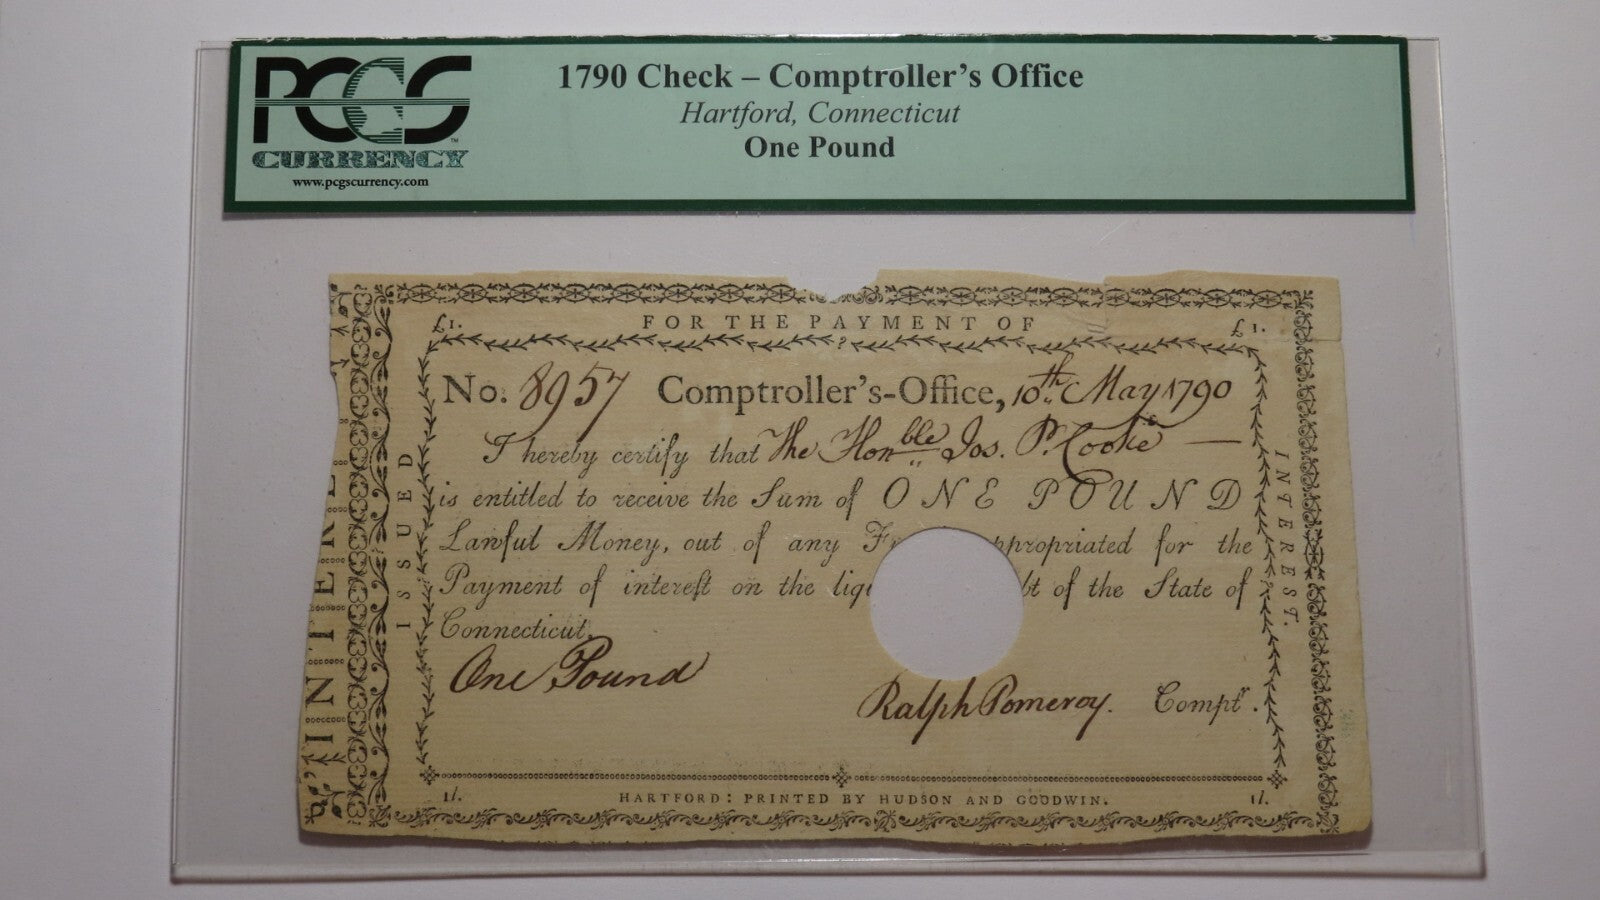 PCGS
CURRENCY
www.pcgscurrency.com
1790 Check – Comptroller's Office
Hartford, Connecticut
One Pound
£1. FOR THE PAYMENT OF £1.
No. 8957 Comptroller's-Office, 10th May 1790
I hereby certify that The Honble Jos. P. Cooke
is entitled to receive the Sum of ONE POUND
Lawful Money, out of any F ppropriated for the
Payment of interest on the liq bt of the State of
Connecticut.
One Pound
Ralph Pomeroy. Compt.r
1/. HARTFORD: PRINTED BY HUDSON AND GOODWIN. 1/.
ISSUED
INTEREST.